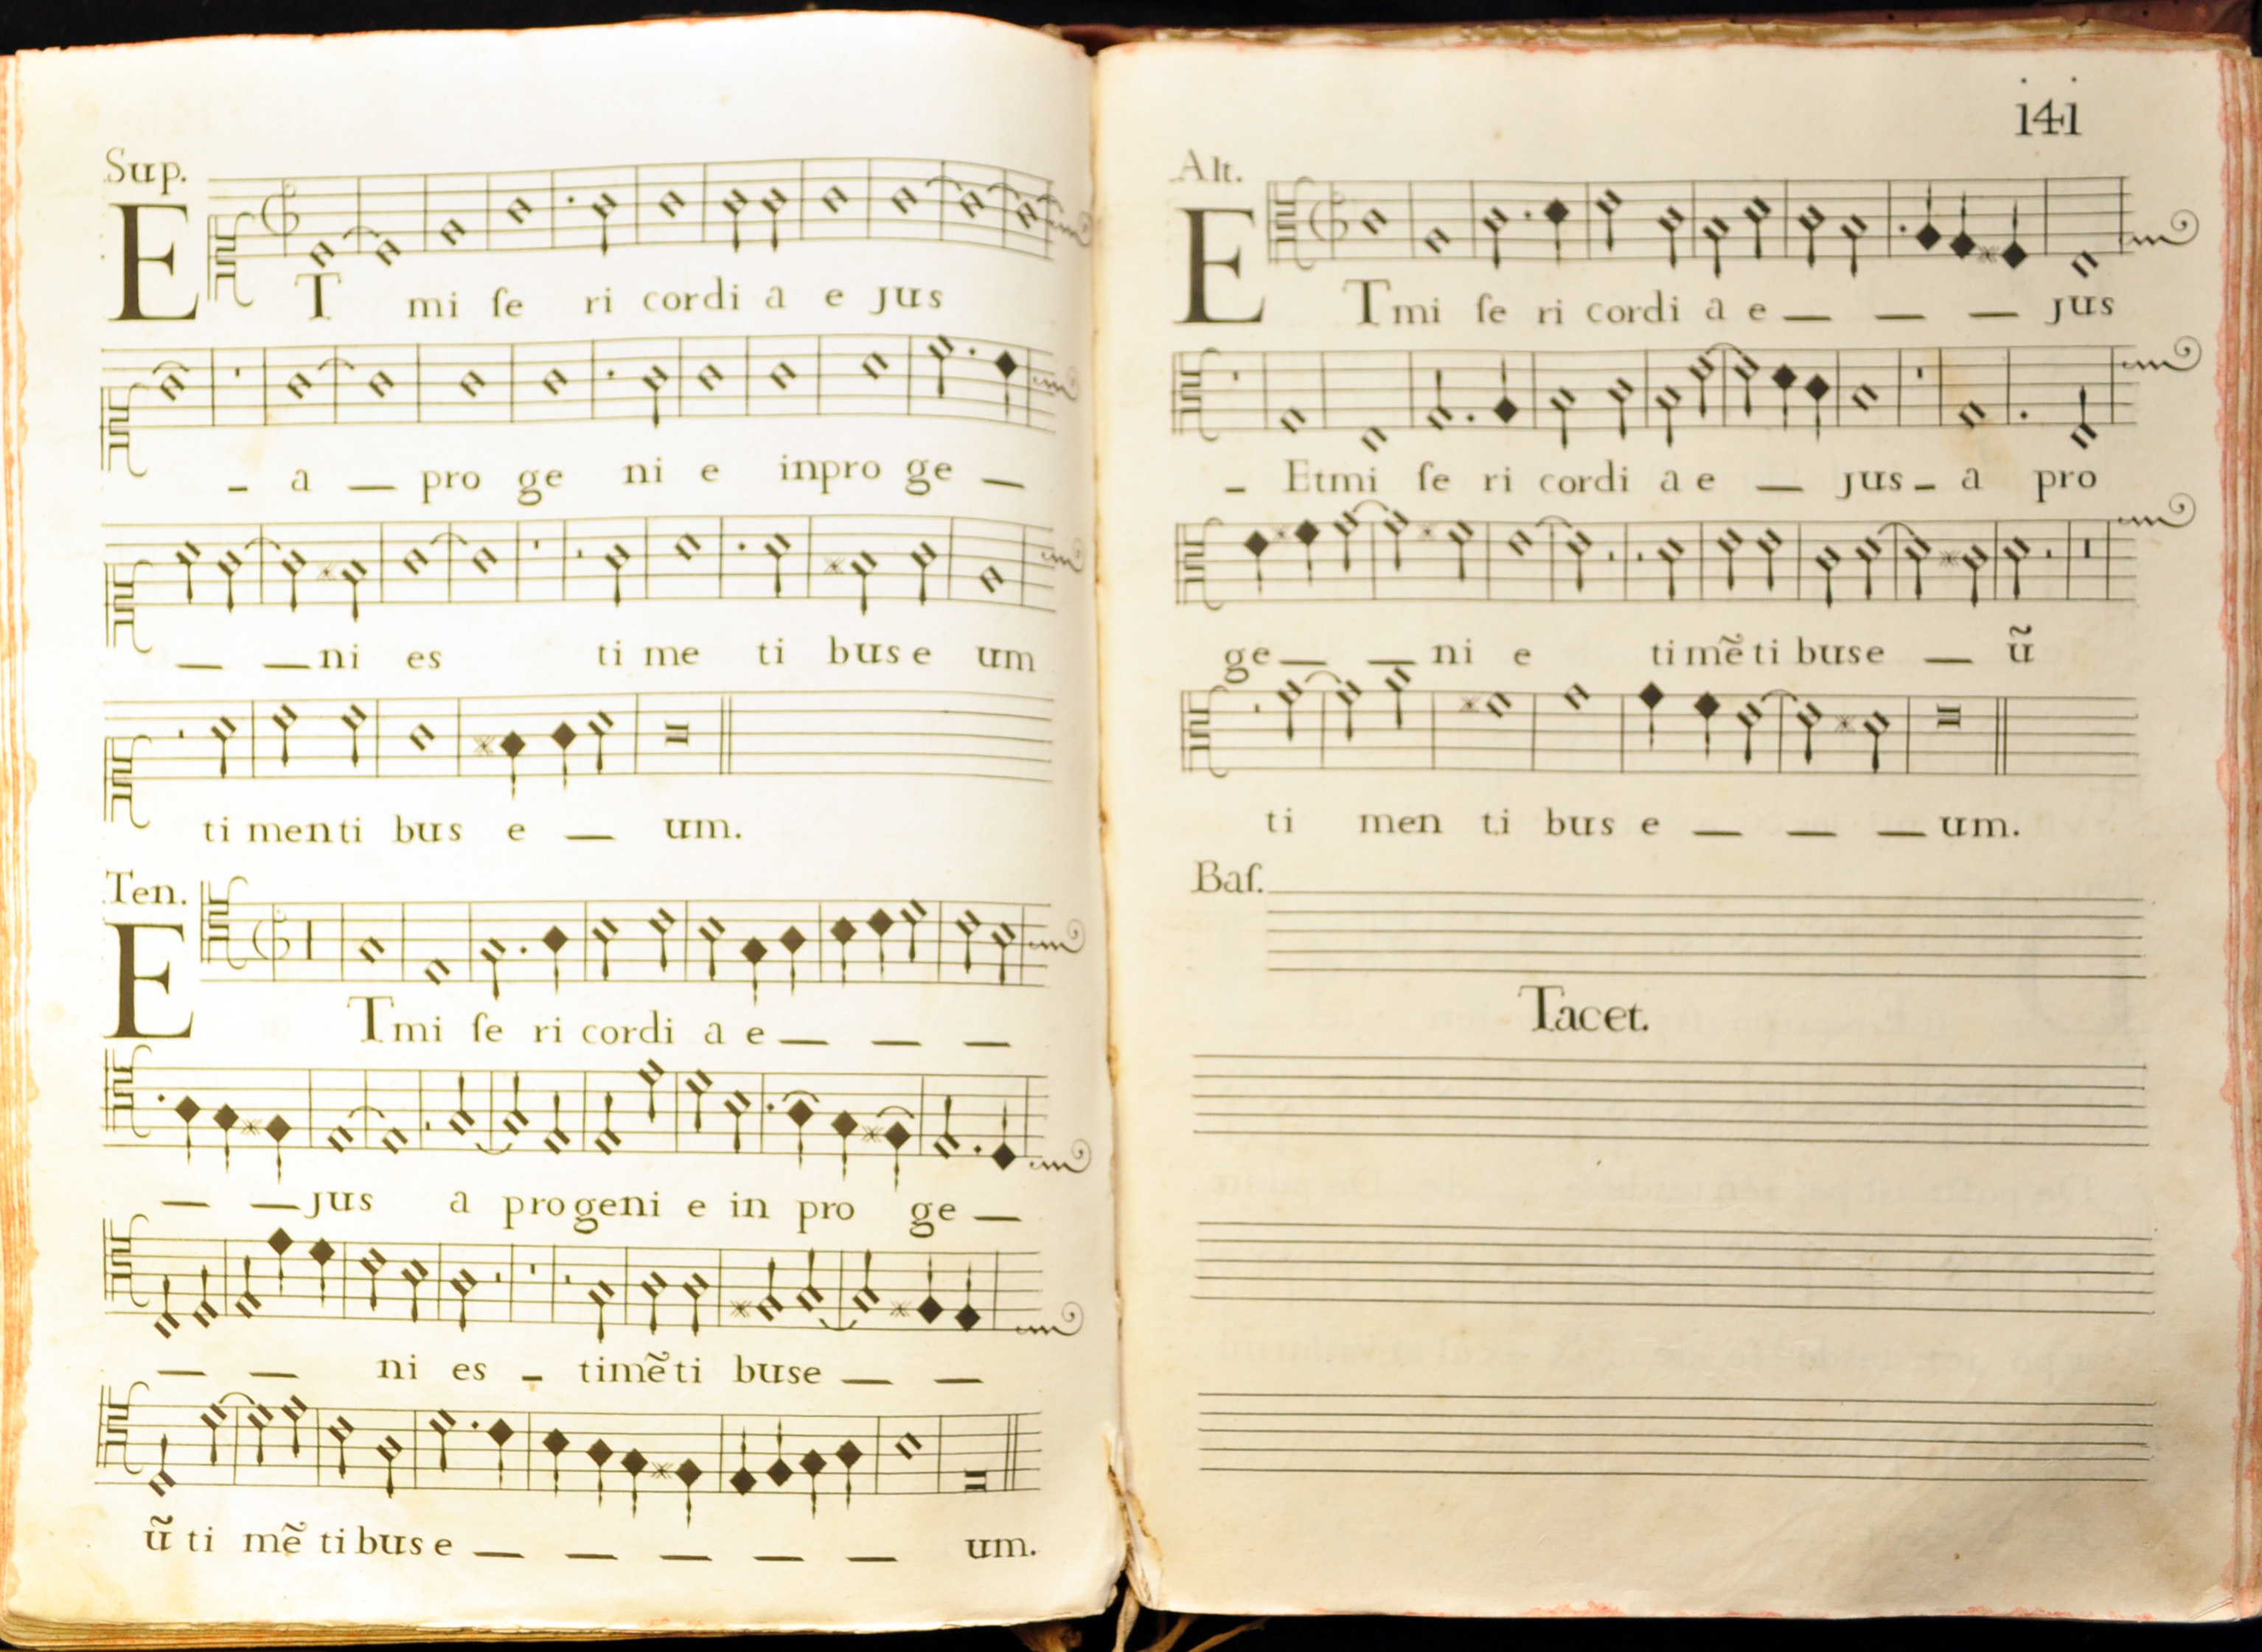 Sup.
ET mi ſe ri cordi a e jus
- a — pro ge ni e inpro ge —
— — ni es ti me ti bus e um
ti menti bus e — um.
Ten.
ETmi ſe ri cordi a e — — —
— — jus a progeni e in pro ge —
— — ni es - timẽti buse — —
ũ ti mẽ tibus e — — — — — um.
141
Alt.
ETmi ſe ri cordi a e — — — jus
- Etmi ſe ri cordi a e — jus - a pro
ge — — ni e timẽti buse — ũ
ti men ti bus e — — — um.
Baſ.
Tacet.